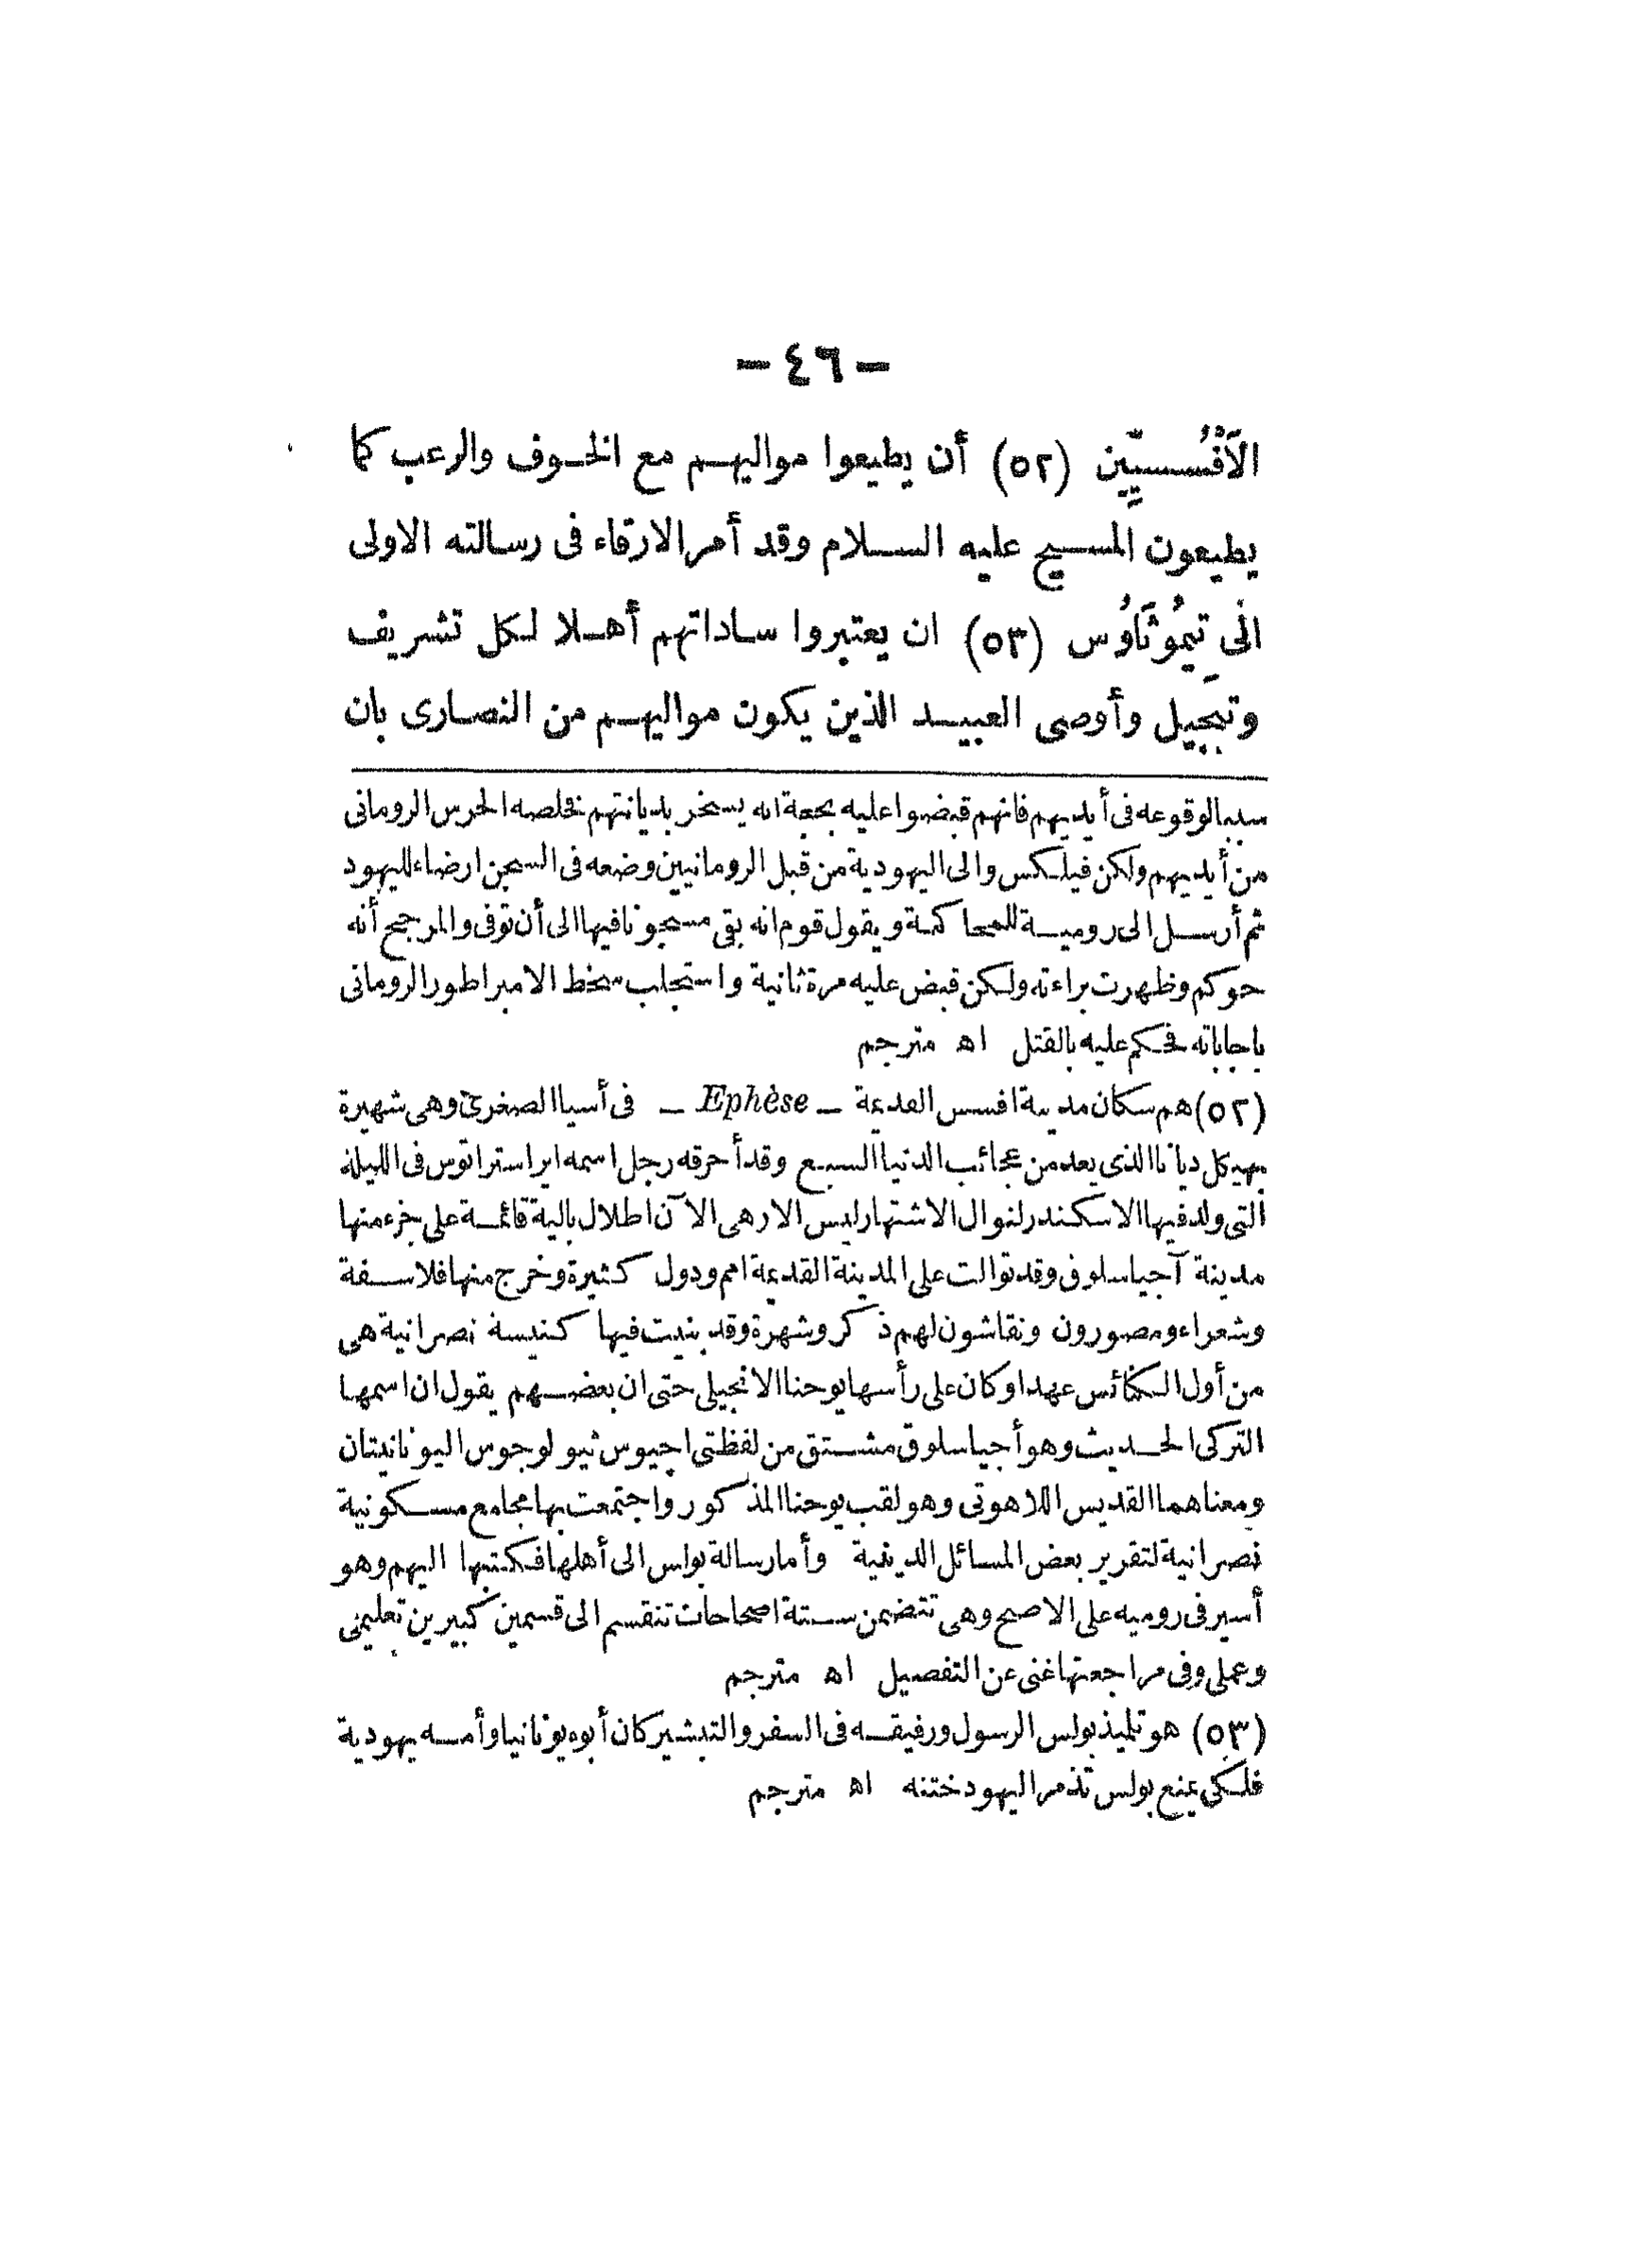 - ٤٦ -
الَافْسُسيِّين (٥٢) أن يطيعوا مواليهم مع الخوف والرعب كما
يطيعون المسيح عليه السلام وقد أمر الارقاء فى رسالته الاولى
الى تِيمُوثَاوُس (٥٣) ان يعتبروا ساداتهم أهلا لكل تشريف
وتبجيل وأوصى العبيد الذين يكون مواليهم من النصارى بان
سببا لوقوعه فى أيديهم فانهم قبضوا عليه بحجة انه يسخر بديانتهم فخلصه الحرس الرومانى
من أيديهم ولكن فيلكس والى اليهودية من قبل الرومانيين وضعه فى السجن ارضاء لليهود
ثم أرسل الى رومية للمحاكمة ويقول قوم انه بقى مسجونا فيها الى أن توفى والمرجح أنه
حوكم وظهرت براءته ولكن قبض عليه مرة ثانية واستجلب سخط الامبراطور الرومانى
باجاباته فحكم عليه بالقتل اه مترجم
(٥٢) هم سكان مدينة افسس القديمة ـ Ephèse ـ فى أسيا الصغرى وهى شهيرة
بهيكل ديانا الذى يعد من عجائب الدنيا السبع وقد أحرقه رجل اسمه ايراستراتوس فى الليلة
التى ولد فيها الاسكندر لنوال الاشتهار ليس الا وهى الآن اطلال بالية قائمة على جزء منها
مدينة آجياسلوق وقد توالت على المدينة القديمة امم ودول كثيرة وخرج منها فلاسفة
وشعراء ومصورون ونقاشون لهم ذكر وشهرة وقد بنيت فيها كنيسة نصرانية هى
من أول الكنائس عهدا وكان على رأسها يوحنا الانجيلى حتى ان بعضهم يقول ان اسمها
التركى الحديث وهو أجياسلوق مشتق من لفظتى اجيوس ثيولوجوس اليونانيتان
ومعناهما القديس اللاهوتى وهو لقب يوحنا المذكور واجتمعت بها مجامع مسكونية
نصرانية لتقرير بعض المسائل الدينية وأما رسالة بولس الى أهلها فكتبها اليهم وهو
أسير فى روميه على الاصح وهى تتضمن ستة اصحاحات تنقسم الى قسمين كبيرين تعليمى
وعملى وفى مراجعتها غنى عن التفصيل اه مترجم
(٥٣) هو تلميذ بولس الرسول ورفيقه فى السفر والتبشير كان أبوه يونانيا وأمه يهودية
فلكى يمنع بولس تذمر اليهود ختنه اه مترجم